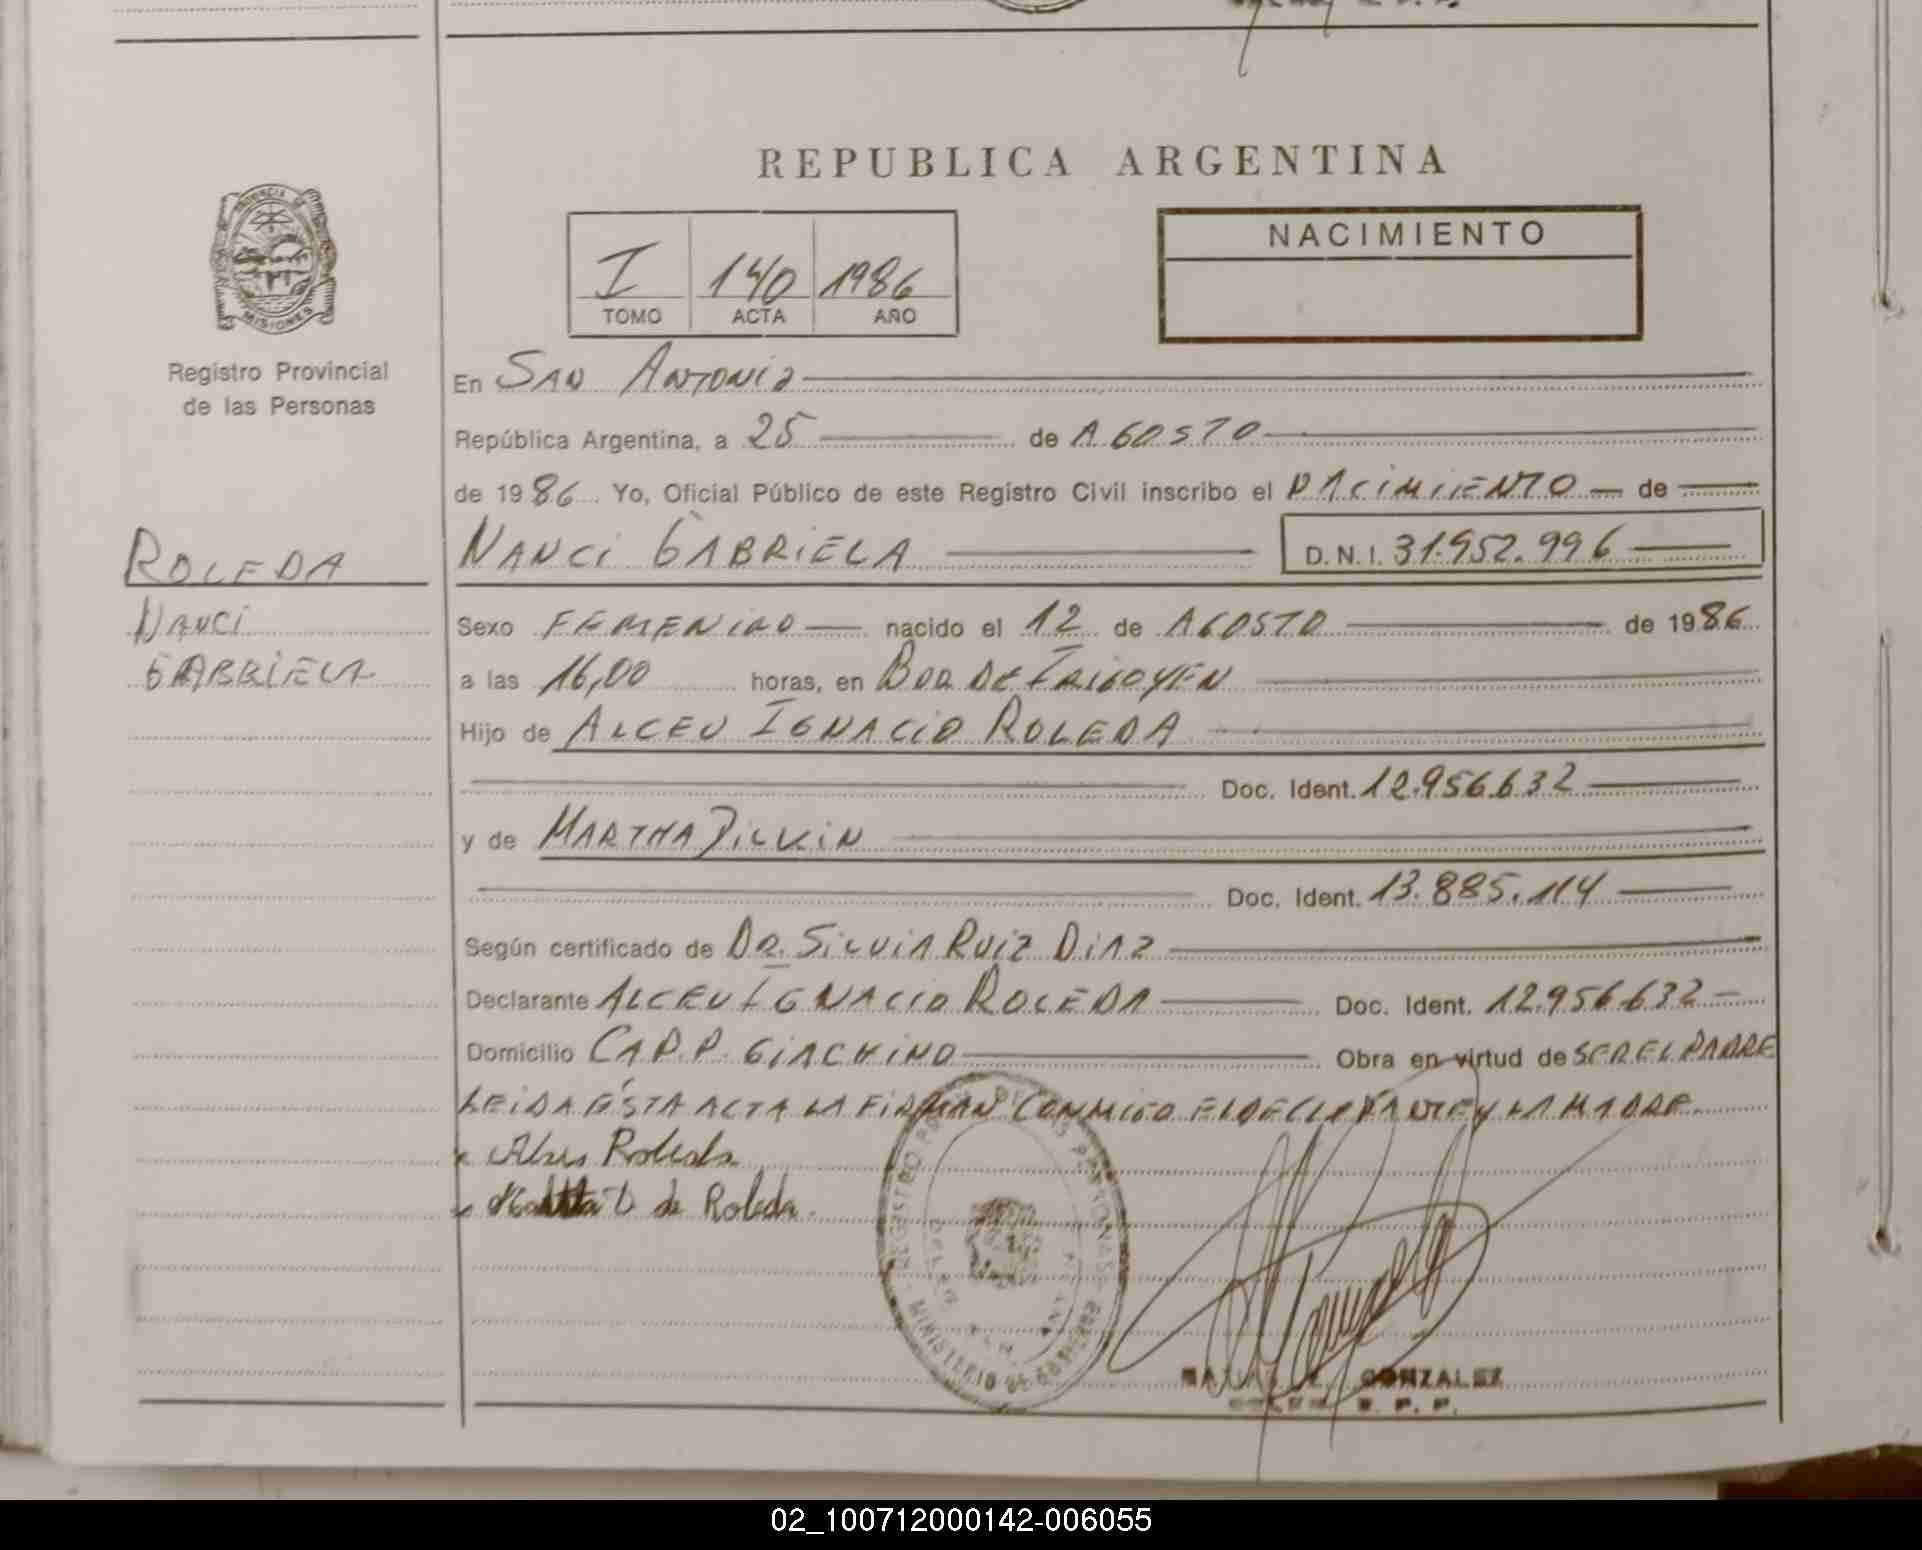 REPUBLICA ARGENTINA
PROVINCIA DE
MISIONES
Registro Provincial
de las Personas
I 140 1986
TOMO ACTA AÑO
NACIMIENTO
En SAN ANTONIO
República Argentina, a 25 de AGOSTO
de 1986 Yo, Oficial Público de este Registro Civil inscribo el NACIMIENTO de
ROLEDA
NANCI GABRIELA D.N.I. 31.952.996
NANCI
GABRIELA
Sexo FEMENINO nacido el 12 de AGOSTO de 1986
a las 16,00 horas, en BDO. DE IRIGOYEN
Hijo de ALCEU IGNACIO ROLEDA
Doc. Ident. 12.956.632
y de MARTHA
Doc. Ident. 13.885.114
Según certificado de DR. SILVIA RUIZ DIAZ
Declarante ALCEU IGNACIO ROLEDA Doc. Ident. 12.956.632
Domicilio CAP. P. GIACHINO Obra en virtud de SER EL PADRE
LEIDA ÉSTA ACTA LA FIRMAN CONMIGO EL DECLARANTE Y LA MADRE
Roleda
de Roleda.
GONZALEZ
R. P. P.
02_100712000142-006055